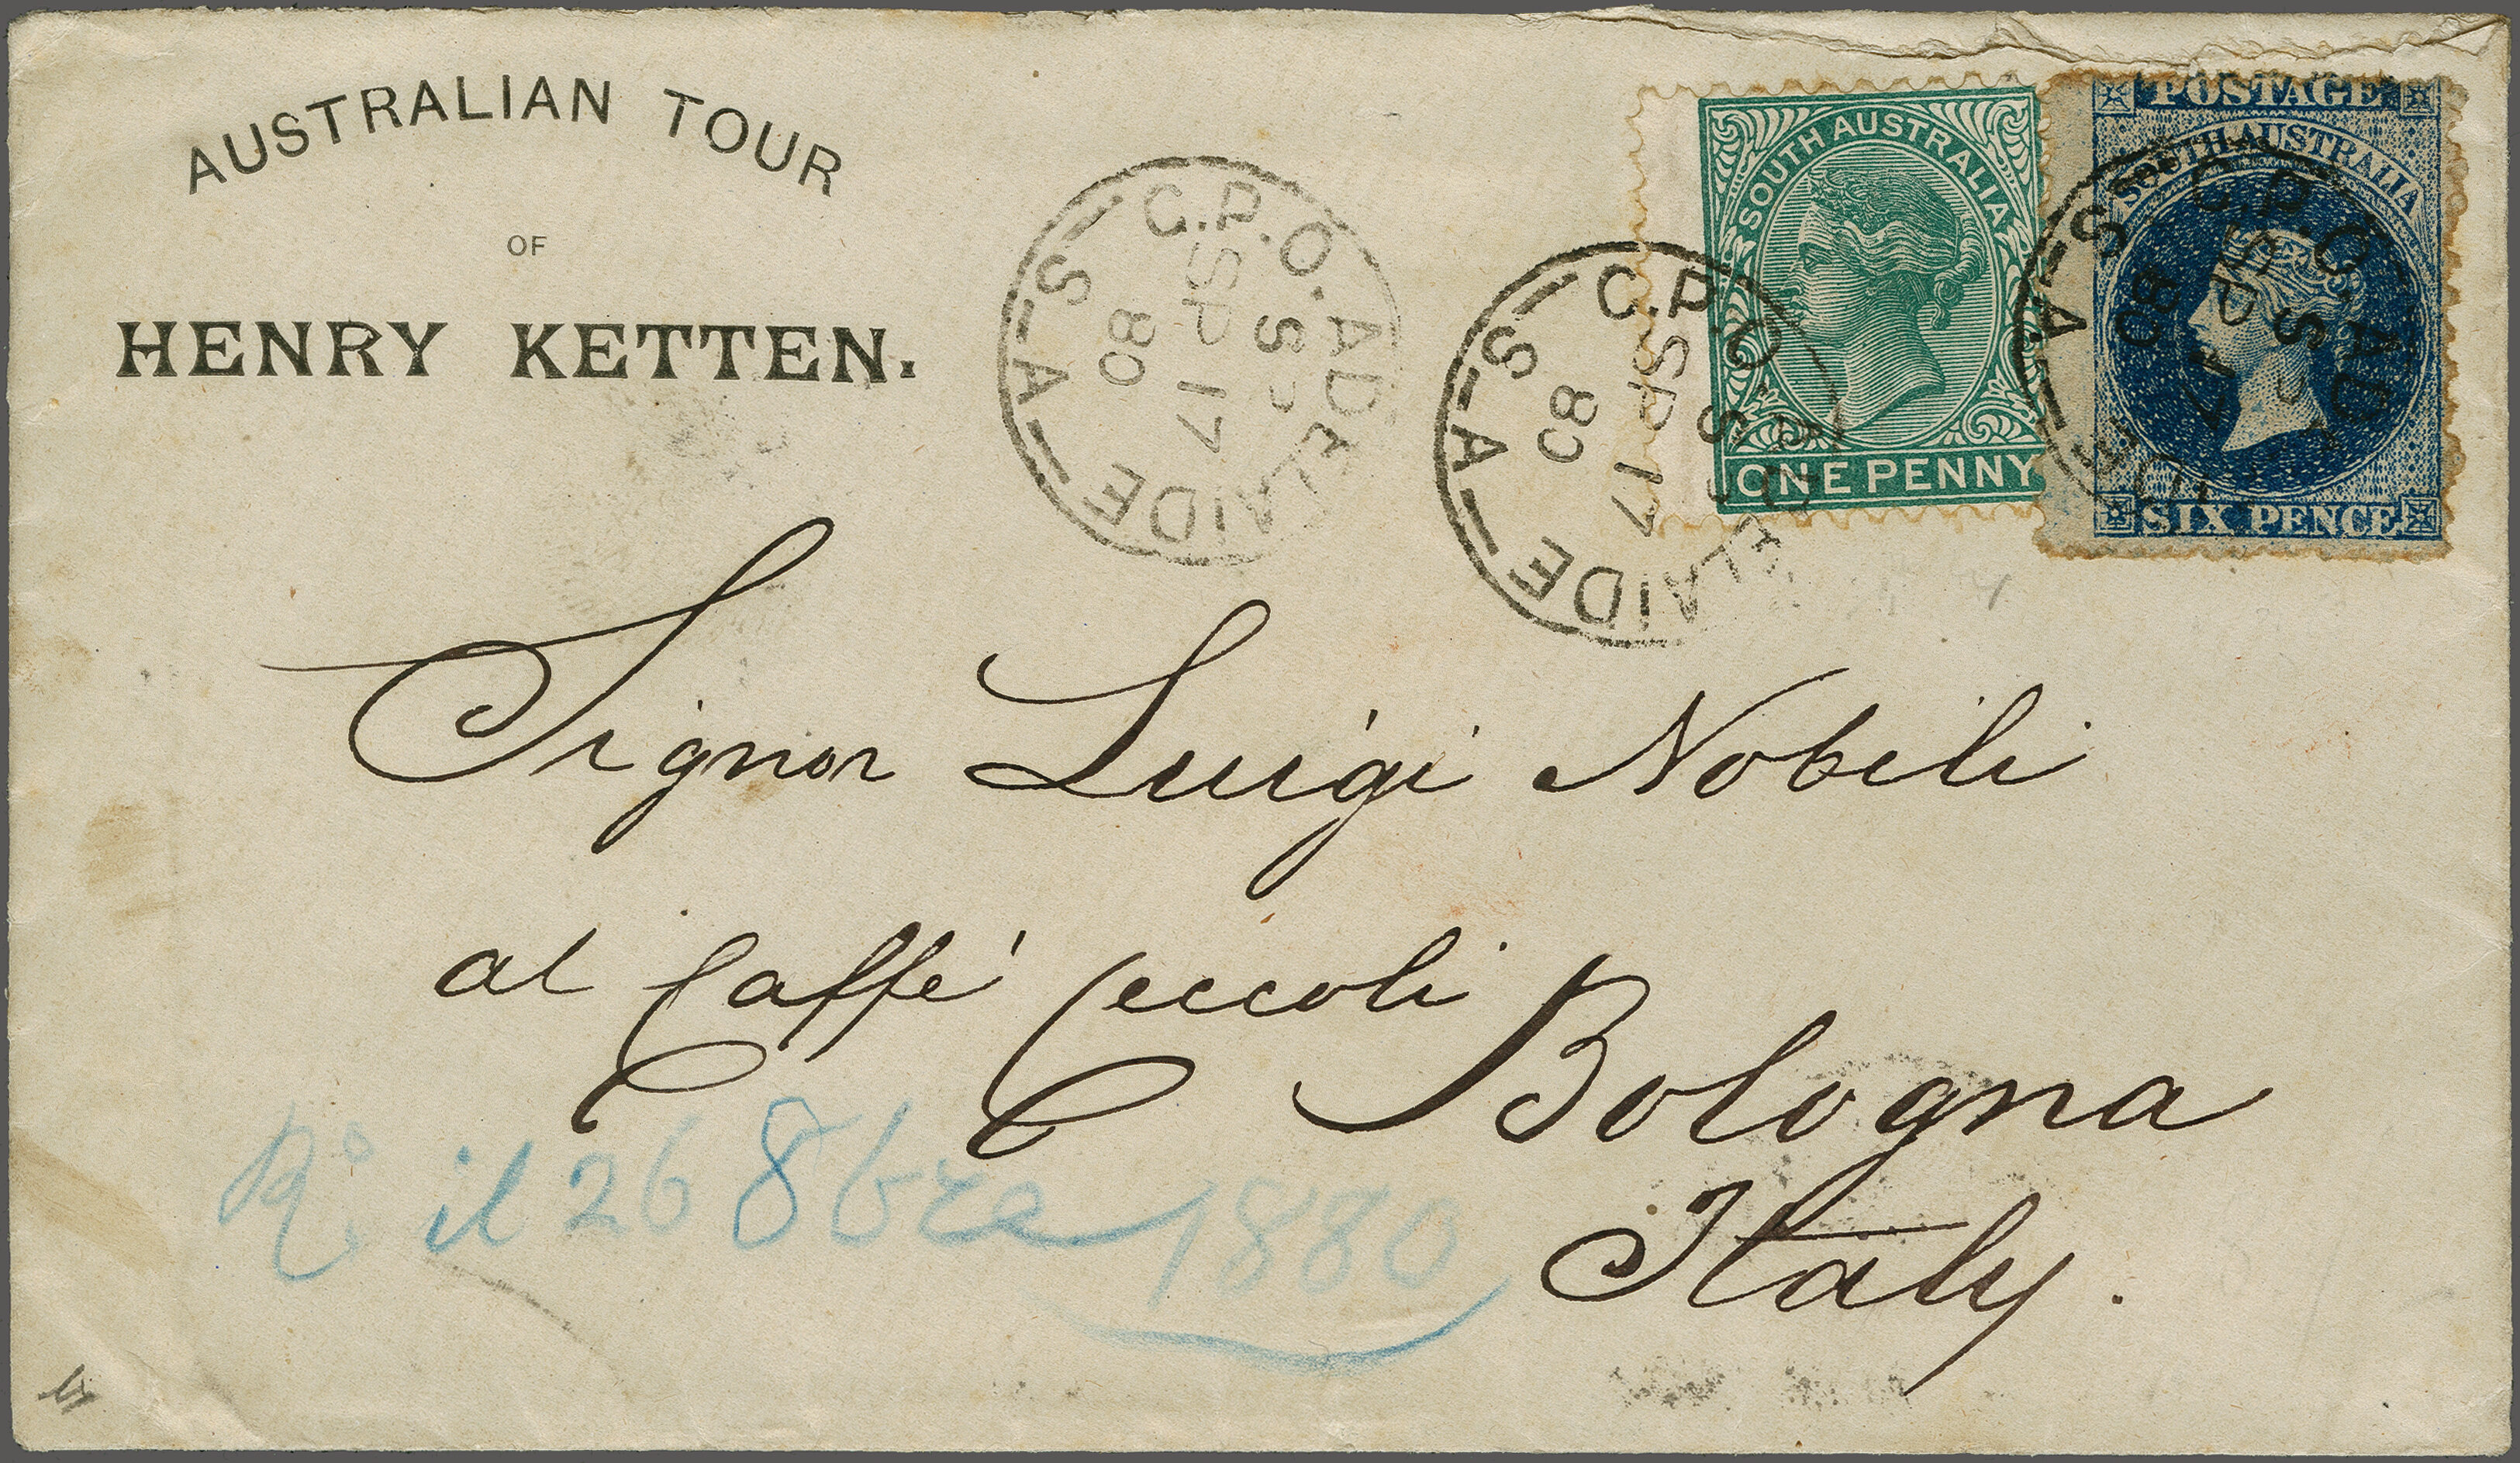 AUSTRALIAN TOUR
OF
HENRY KETTEN.
G.P.O. ADELAIDE
S
SP 17
80
S–A
G.P.O. ADELAIDE
S
SP 17
80
S–A
SOUTH AUSTRALIA
ONE PENNY
POSTAGE
SOUTH AUSTRALIA
SIX PENCE
G.P.O. ADELAIDE
S
SP 17
80
S–A
Signor Luigi Nobili
al Caffè Ceccoli
Bologna
Italy.
Ro il 26 8bre 1880